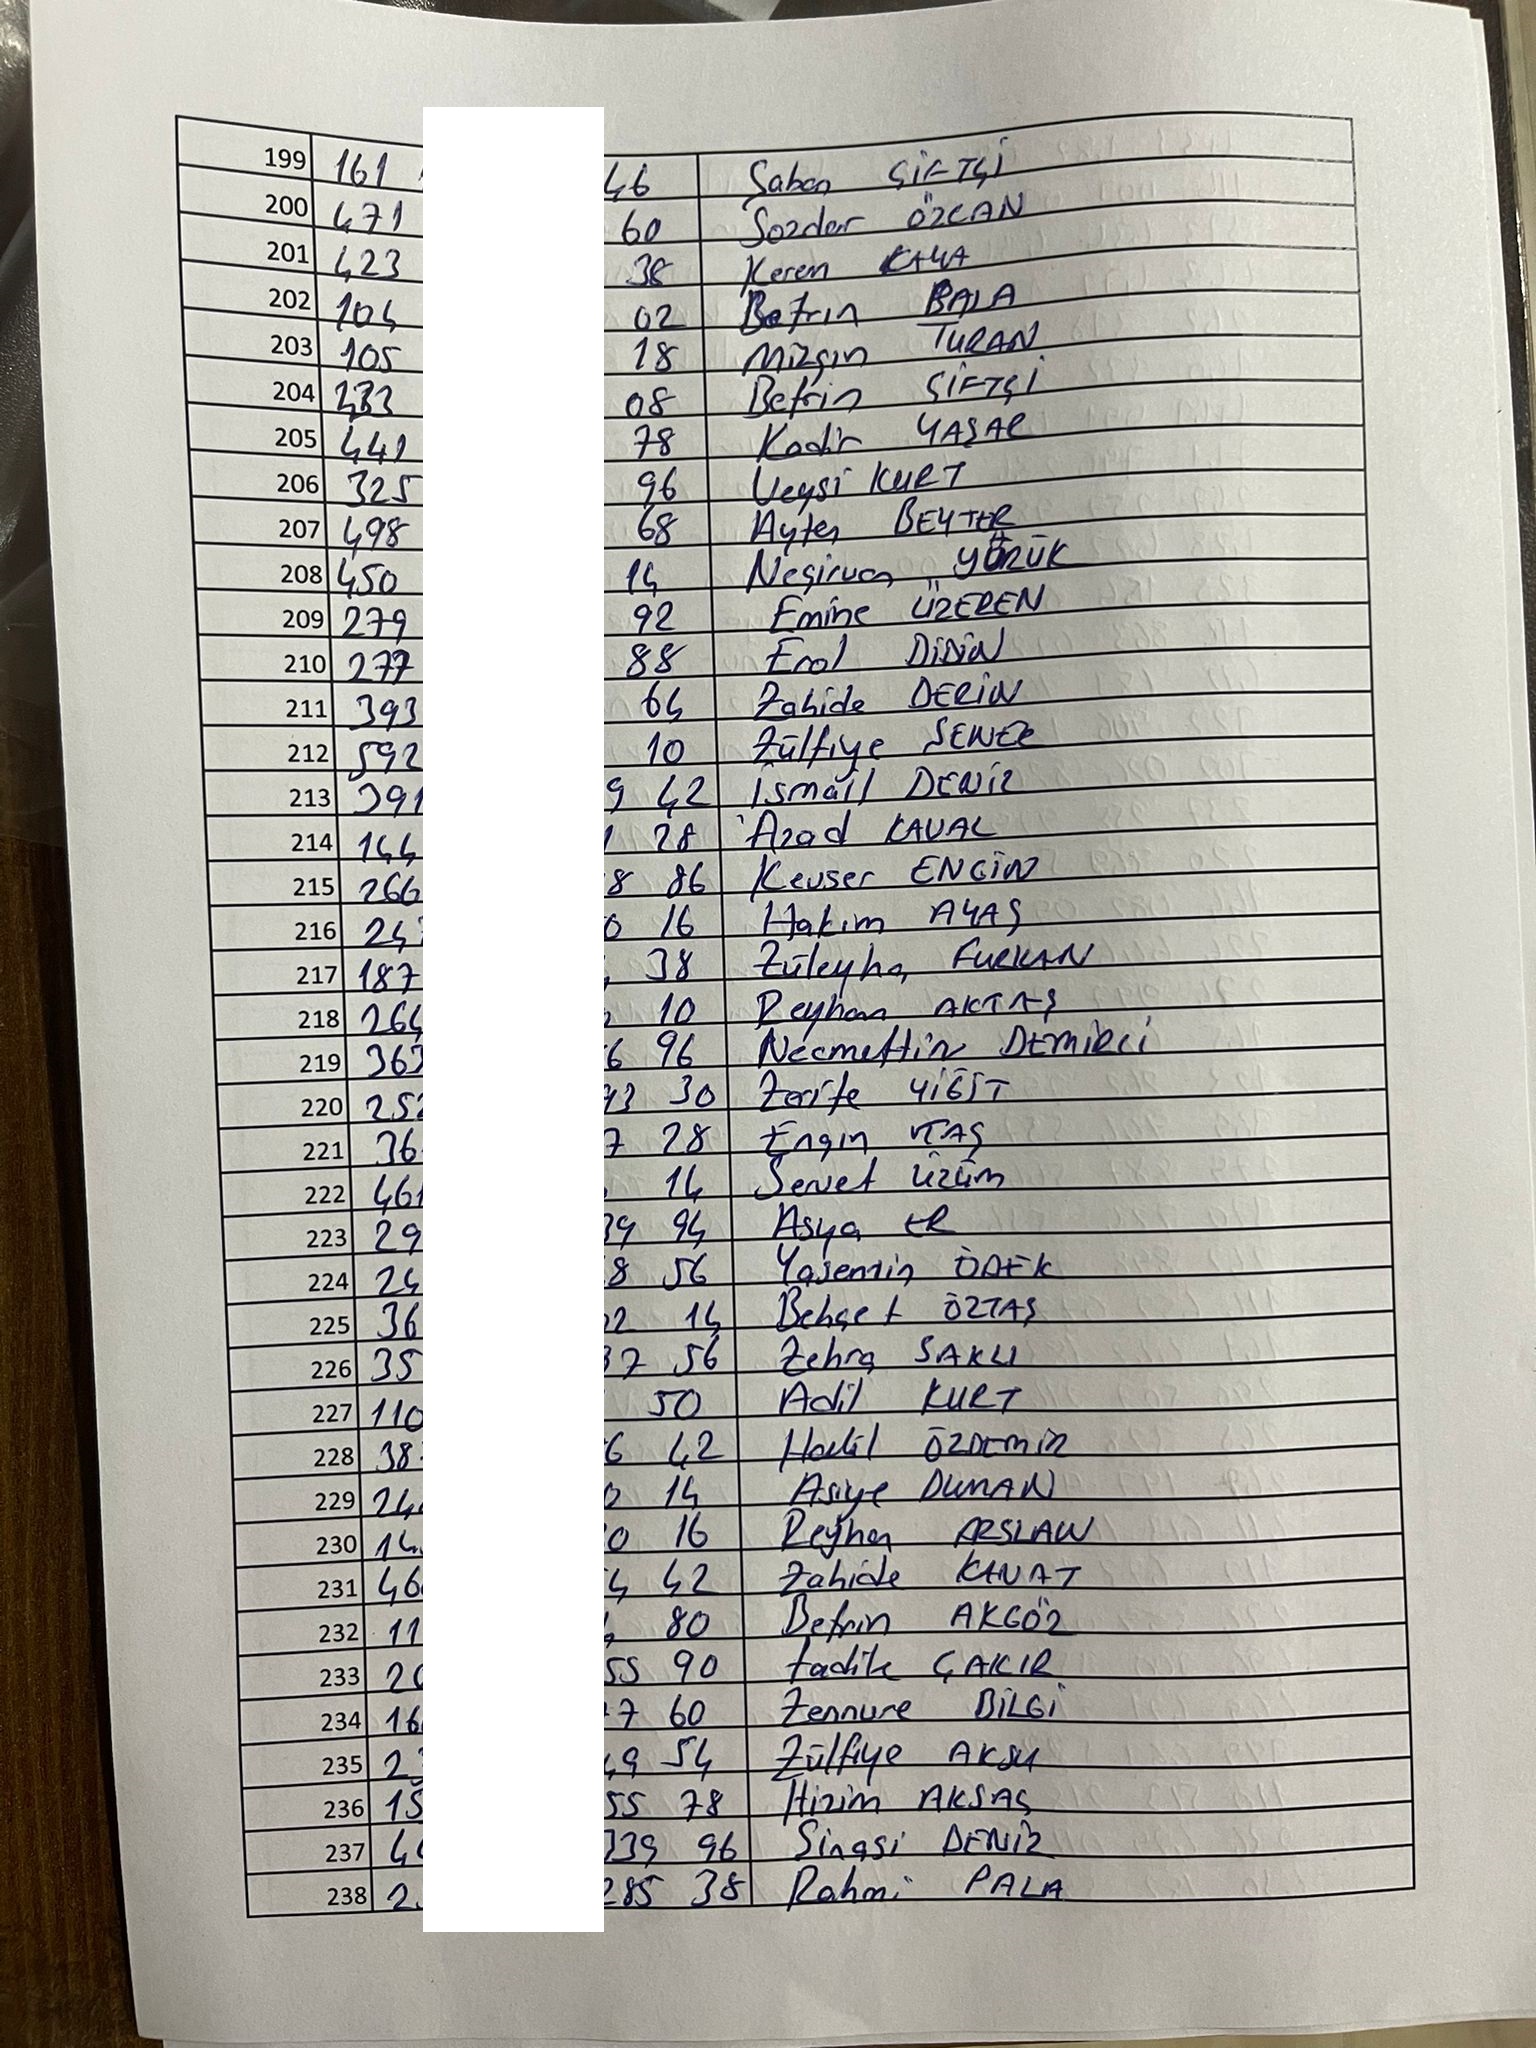 199 161 46 Şaban ÇİFTÇİ
200 471 60 Sozdar ÖZCAN
201 423 38 Kerem KAYA
202 104 02 Befrin BALA
203 105 18 Mizgin TURAN
204 233 08 Befrin ÇİFTÇİ
205 441 78 Kadir YAŞAR
206 325 96 Veysi KURT
207 498 68 Ayten BEYTER
208 450 14 Neçirvan YÖRÜK
209 279 92 Emine ÜZEREN
210 277 88 Erol DİDİN
211 393 64 Zahide DERİN
212 592 10 Zülfiye ŞENER
213 391 9 42 İsmail DENİZ
214 144 28 Azad KAVAL
215 266 8 86 Kevser ENGİN
216 24 0 16 Hakim AYAŞ
217 187 38 Züleyha FURKAN
218 264 10 Reyhan AKTAŞ
219 363 6 96 Necmettin DEMİRCİ
220 252 93 30 Zarife YİĞİT
221 36 7 28 Engin TAŞ
222 461 14 Servet ÜZÜM
223 29 39 94 Asya ER
224 24 8 56 Yasemin ÖDEK
225 36 02 14 Behçet ÖZTAŞ
226 35 37 56 Zehra SAKLI
227 110 50 Adil KURT
228 38 6 42 Halil ÖZDEMİR
229 24 0 14 Asiye DUMAN
230 14 0 16 Reyhan ARSLAN
231 46 4 42 Zahide KANAT
232 11 80 Befrin AKGÖZ
233 20 55 90 Fadile ÇAKIR
234 16 7 60 Zennure BİLGİ
235 2 49 54 Zülfiye AKSU
236 15 55 78 Hizim AKSAÇ
237 4 339 96 Sinasi DENİZ
238 2 285 38 Rahmi PALA